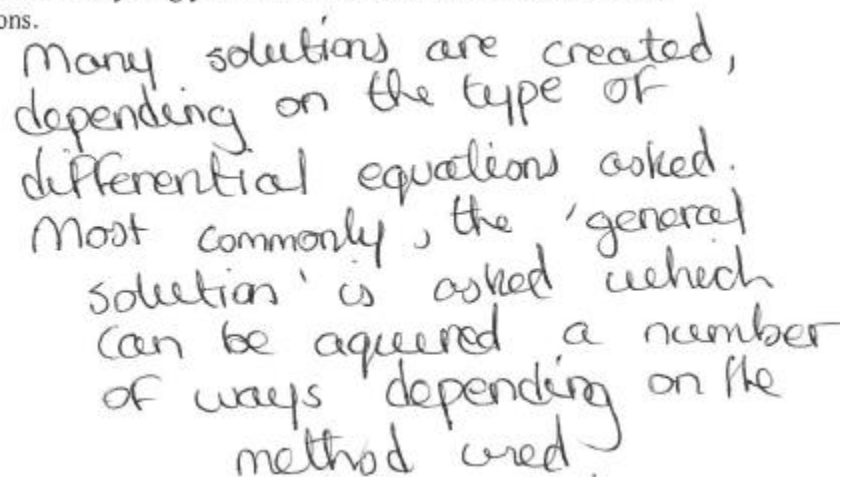 ons.
Many solutions are created,
depending on the type of
differential equations asked.
Most commonly, the 'general
solution' is asked which
can be aquired a number
of ways depending on the
method used.